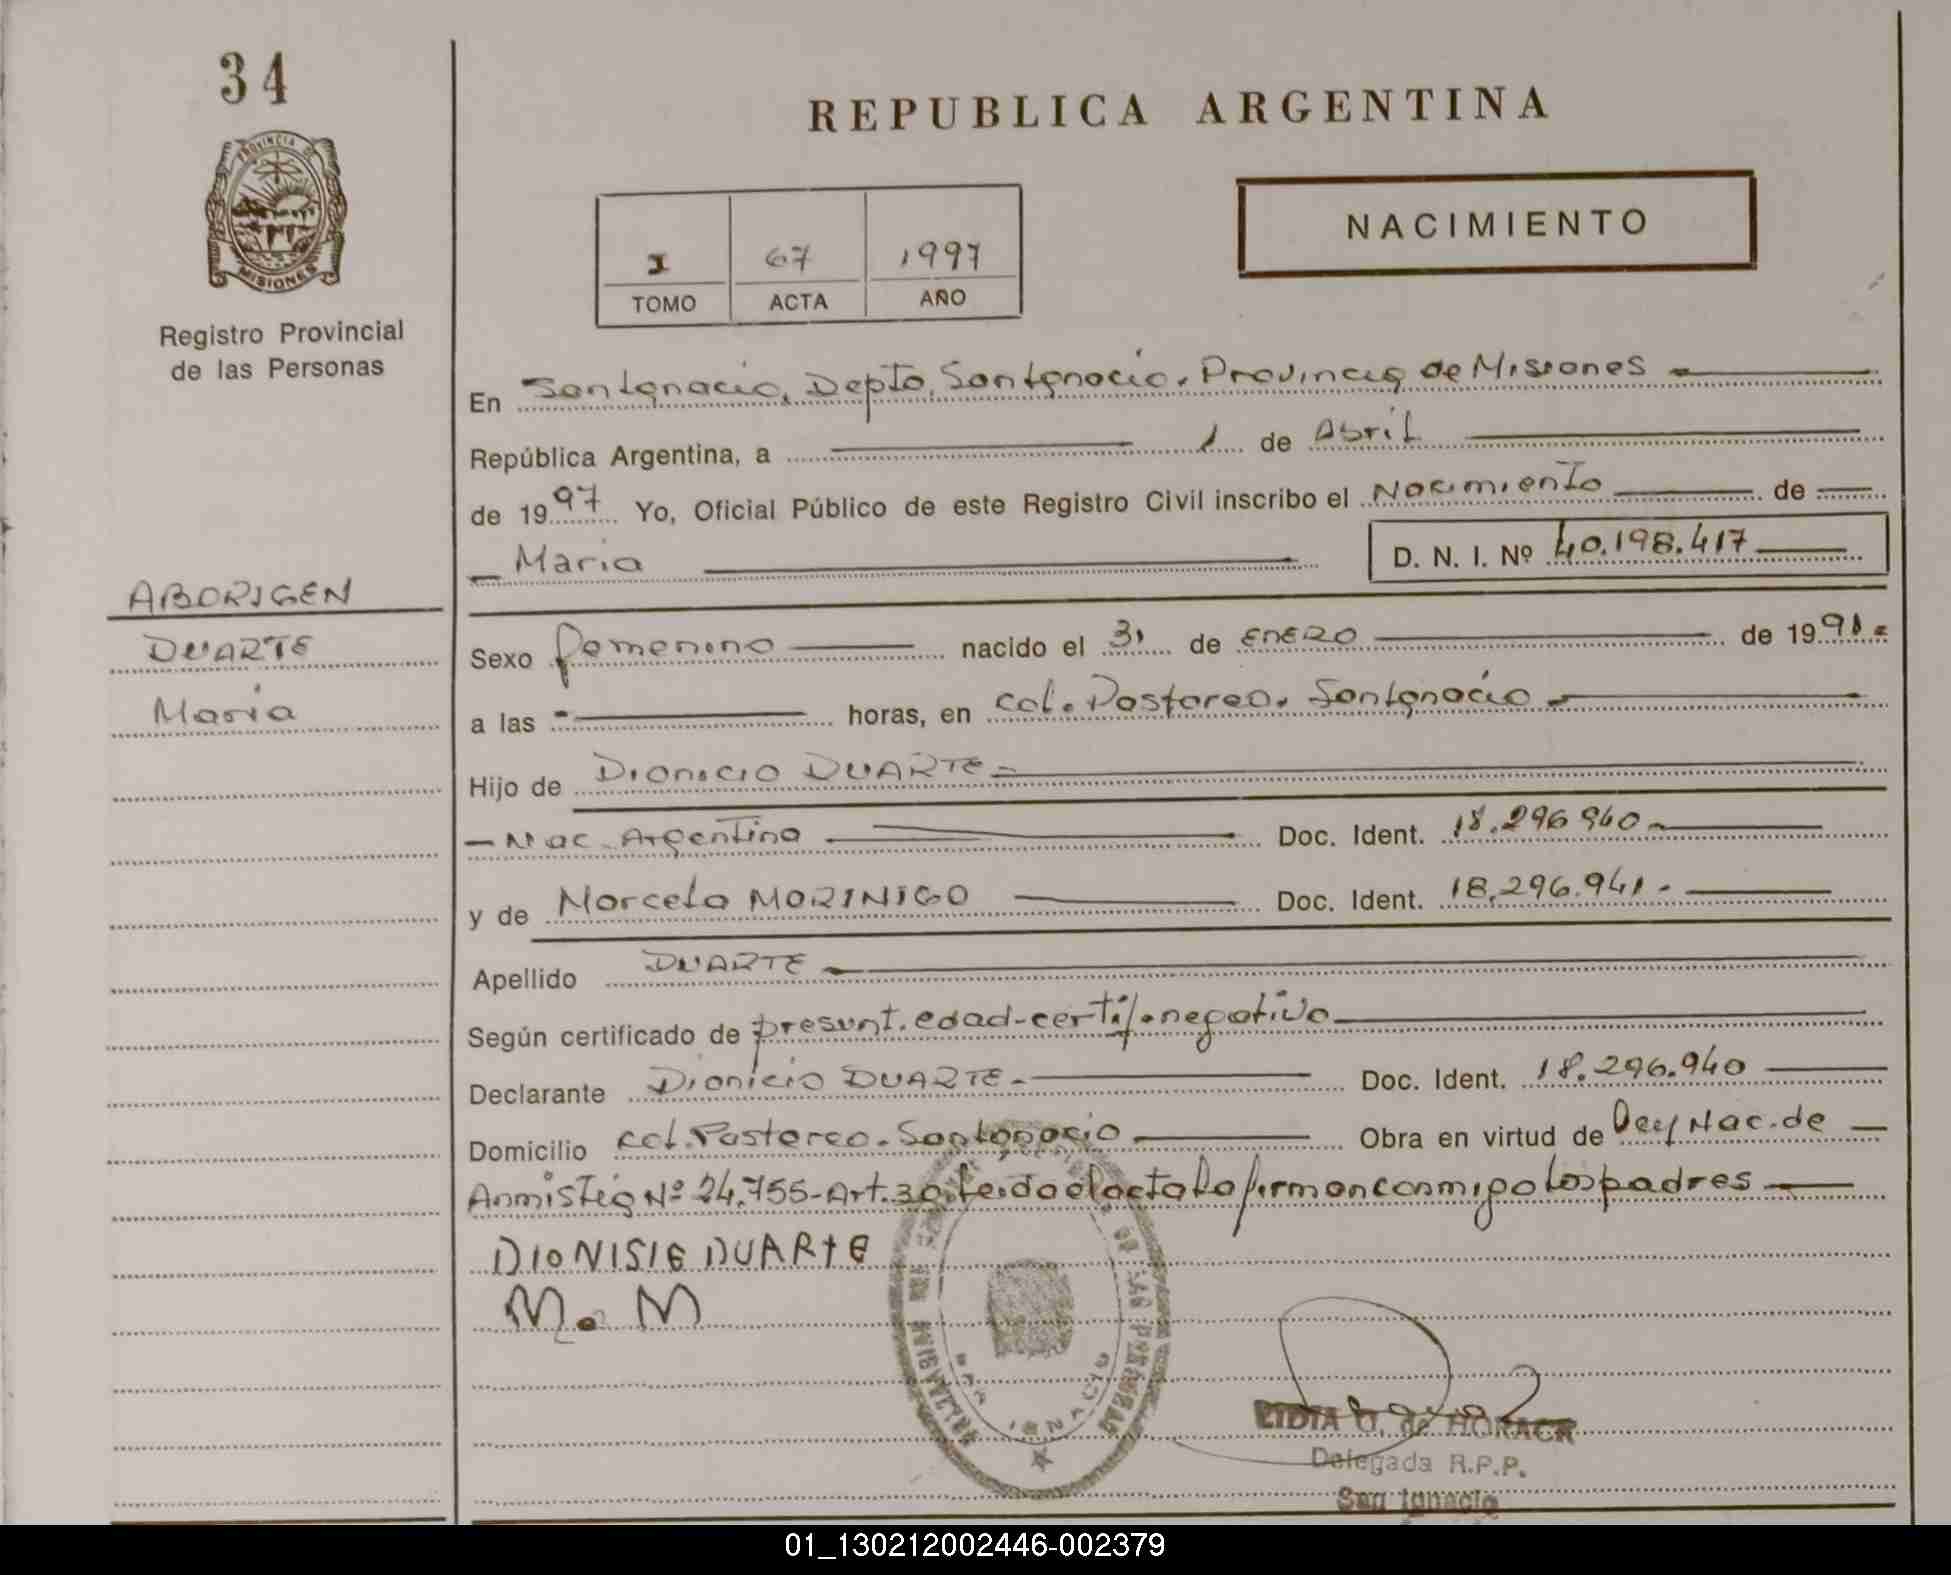 34
REPUBLICA ARGENTINA
PROVINCIA DE
MISIONES
Registro Provincial
de las Personas
I 67 1997
TOMO ACTA AÑO
NACIMIENTO
En San Ignacio, Depto, San Ignacio. Provincia de Misiones
República Argentina, a 1 de Abril
de 1997 Yo, Oficial Público de este Registro Civil inscribo el Nacimiento de
Maria D. N. I. Nº 40.198.417
ABORIGEN
DUARTE
Maria
Sexo femenino nacido el 31 de ENERO de 1991
a las horas, en col. Pastoreo. San Ignacio
Hijo de Dionicio DUARTE
Nac. Argentina Doc. Ident. 18.296.940
y de Marcela MORINIGO Doc. Ident. 18.296.941.
Apellido DUARTE
Según certificado de presunt. edad-certif. negativo
Declarante Dionicio DUARTE Doc. Ident. 18.296.940
Domicilio col. Pastoreo. San Ignacio Obra en virtud de Ley Nac. de
Anmistia Nº 24.755-Art. 3º. Leida el acta la firman conmigo los padres
DIONISIE DUARTE
M. M
LIDIA de
Delegada R.P.P.
San Ignacio
01_130212002446-002379